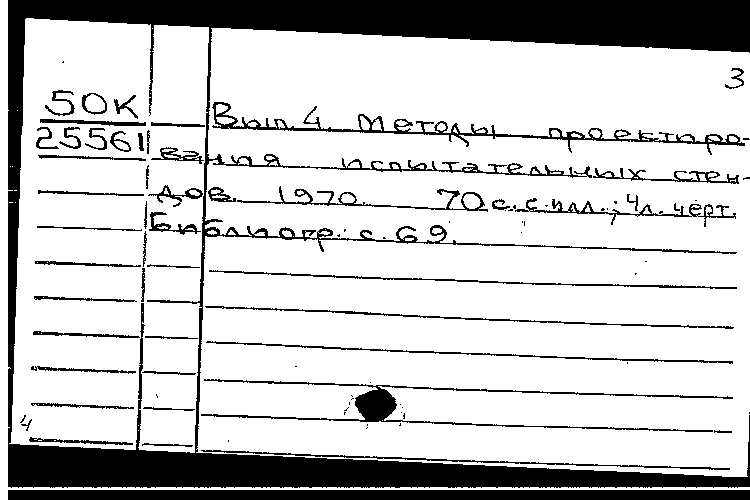 3
50К
25561
Вып. 4. Методы проектиро-
вания испытательных стен-
дов. 1970. 70 с. с илл.; 4 л. черт.
Библиогр.: с. 69.
4